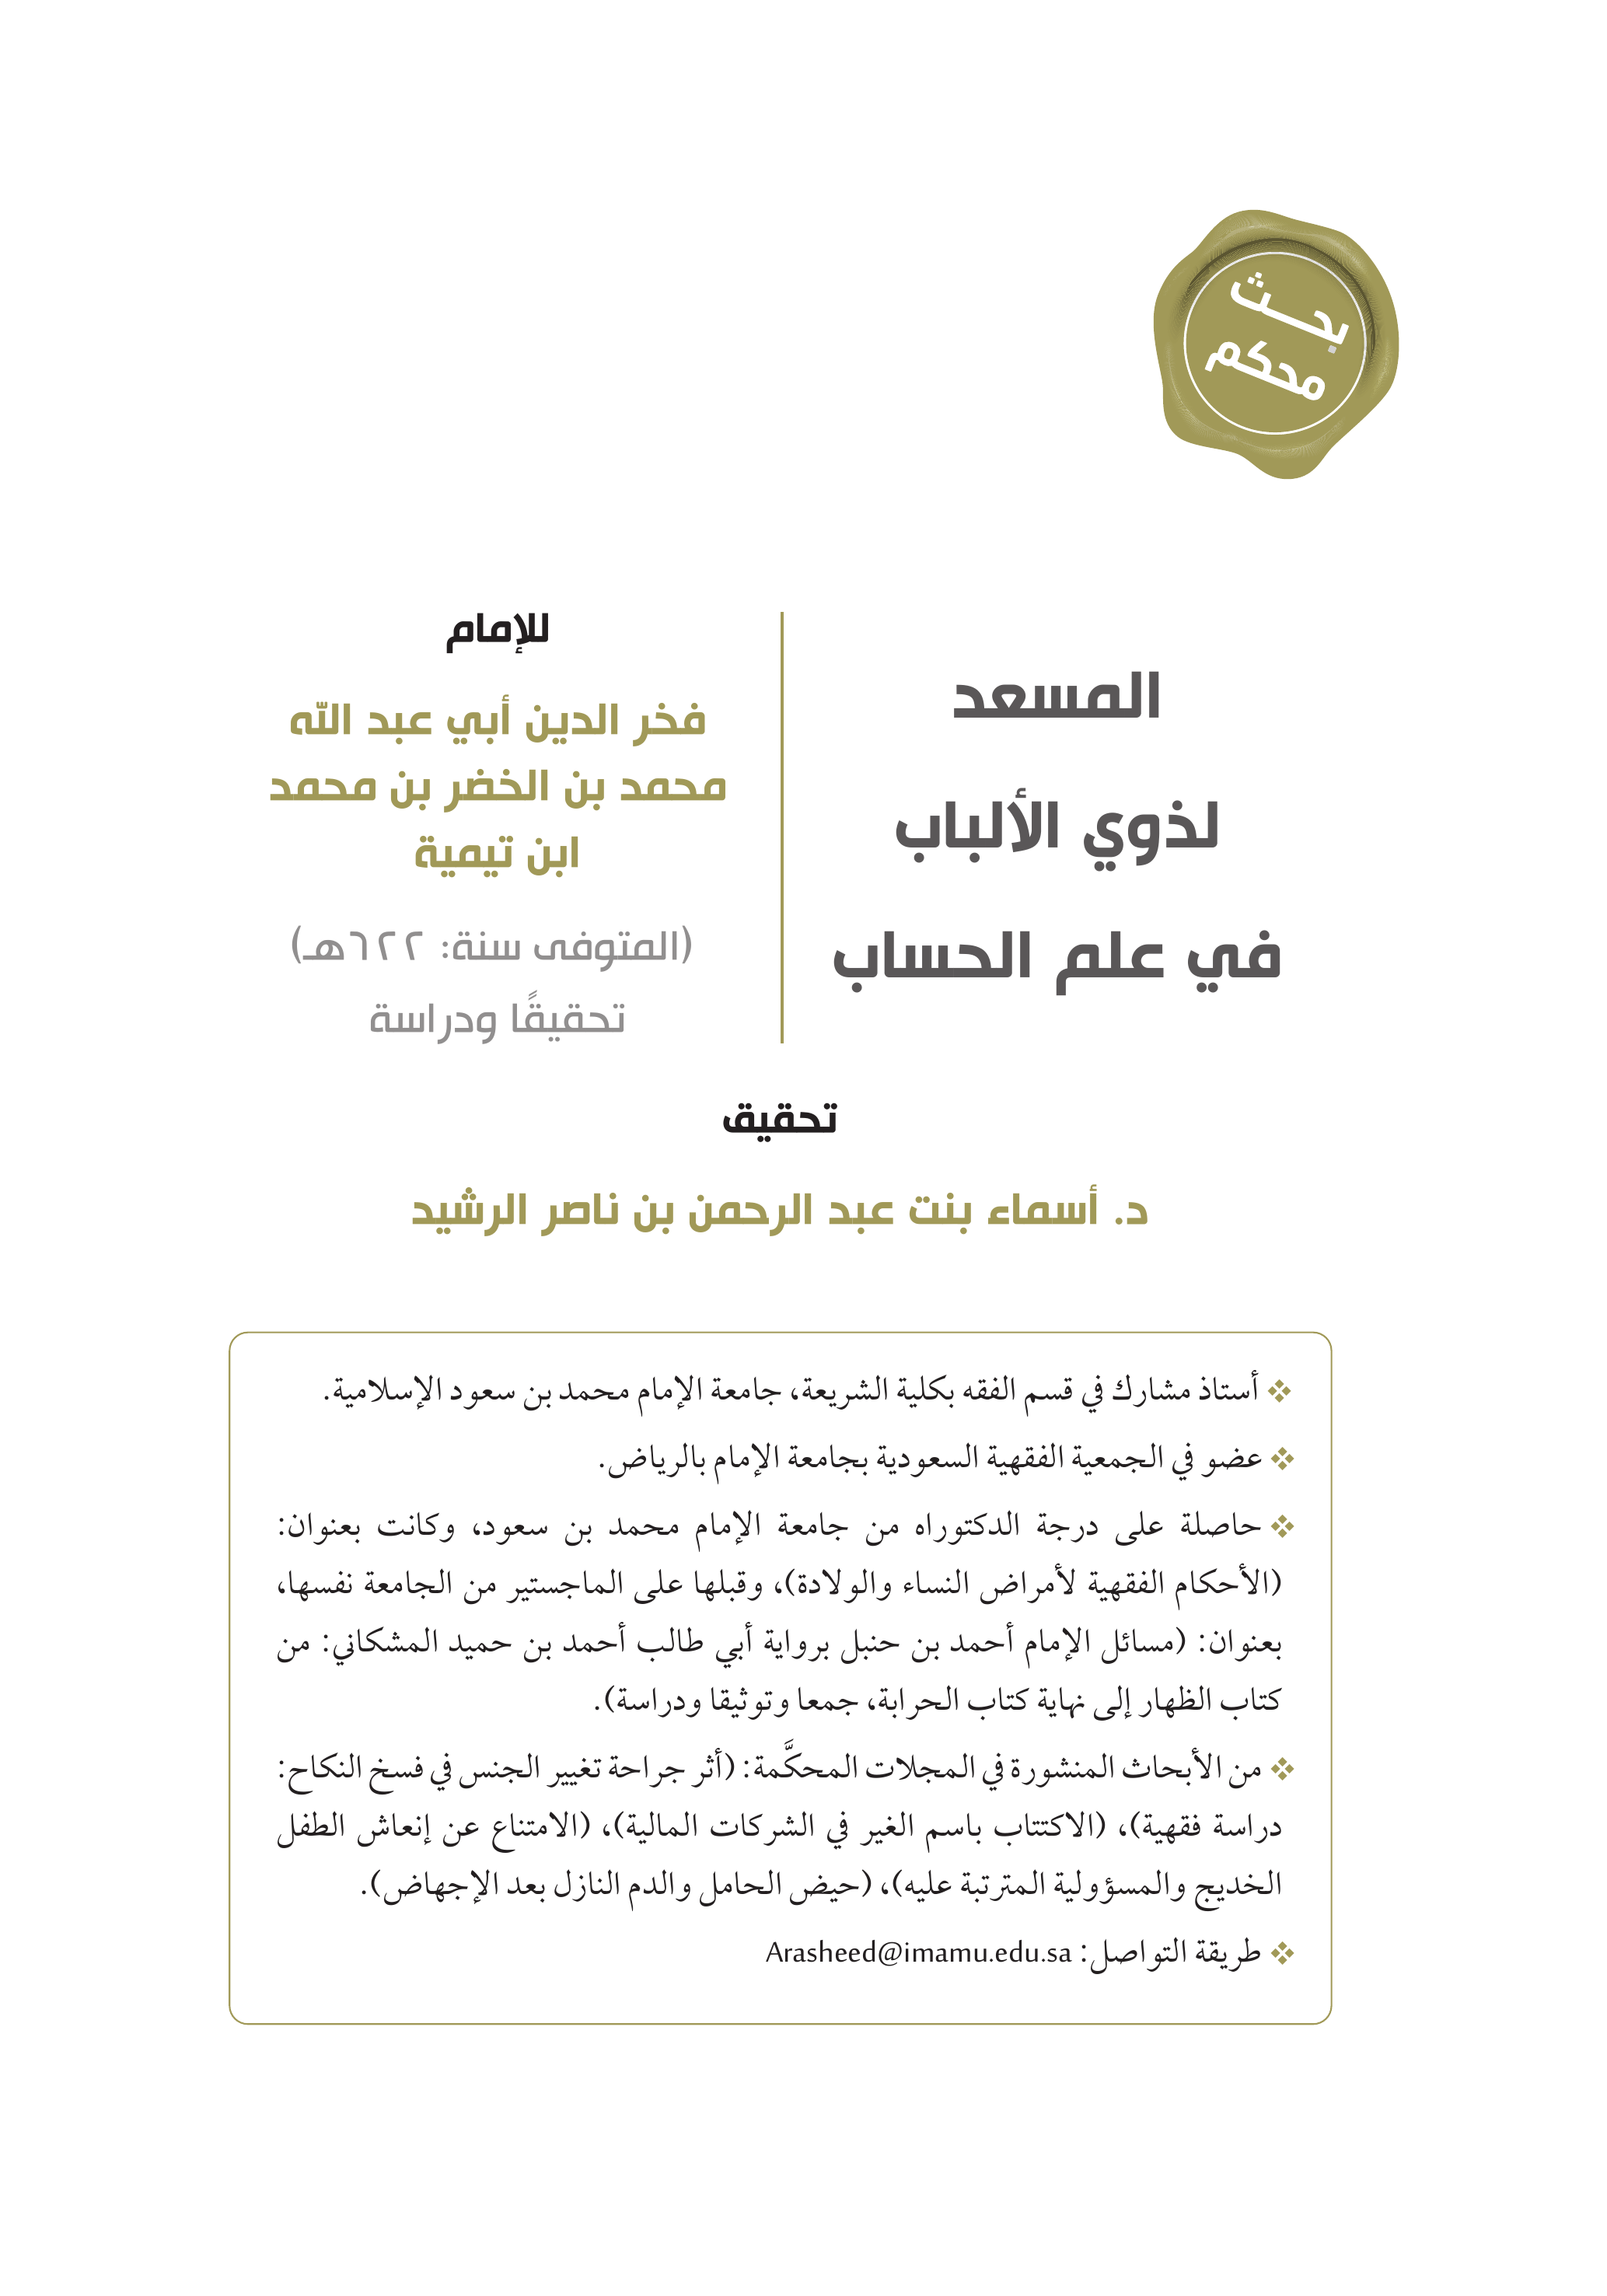 بحـــث
محكم
المسعد
لذوي الألباب
في علم الحساب
للإمام
فخر الدين أبي عبد الله
محمد بن الخضر بن محمد
ابن تيمية
(المتوفى سنة: ٦٢٢هـ)
تحقيقًا ودراسة
تحقيق
د. أسماء بنت عبد الرحمن بن ناصر الرشيد
❖ أستاذ مشارك في قسم الفقه بكلية الشريعة، جامعة الإمام محمد بن سعود الإسلامية.
❖ عضو في الجمعية الفقهية السعودية بجامعة الإمام بالرياض.
❖ حاصلة على درجة الدكتوراه من جامعة الإمام محمد بن سعود، وكانت بعنوان:
(الأحكام الفقهية لأمراض النساء والولادة)، وقبلها على الماجستير من الجامعة نفسها،
بعنوان: (مسائل الإمام أحمد بن حنبل برواية أبي طالب أحمد بن حميد المشكاني: من
كتاب الظهار إلى نهاية كتاب الحرابة، جمعا وتوثيقا ودراسة).
❖ من الأبحاث المنشورة في المجلات المحكَّمة: (أثر جراحة تغيير الجنس في فسخ النكاح:
دراسة فقهية)، (الاكتتاب باسم الغير في الشركات المالية)، (الامتناع عن إنعاش الطفل
الخديج والمسؤولية المترتبة عليه)، (حيض الحامل والدم النازل بعد الإجهاض).
❖ طريقة التواصل: Arasheed@imamu.edu.sa